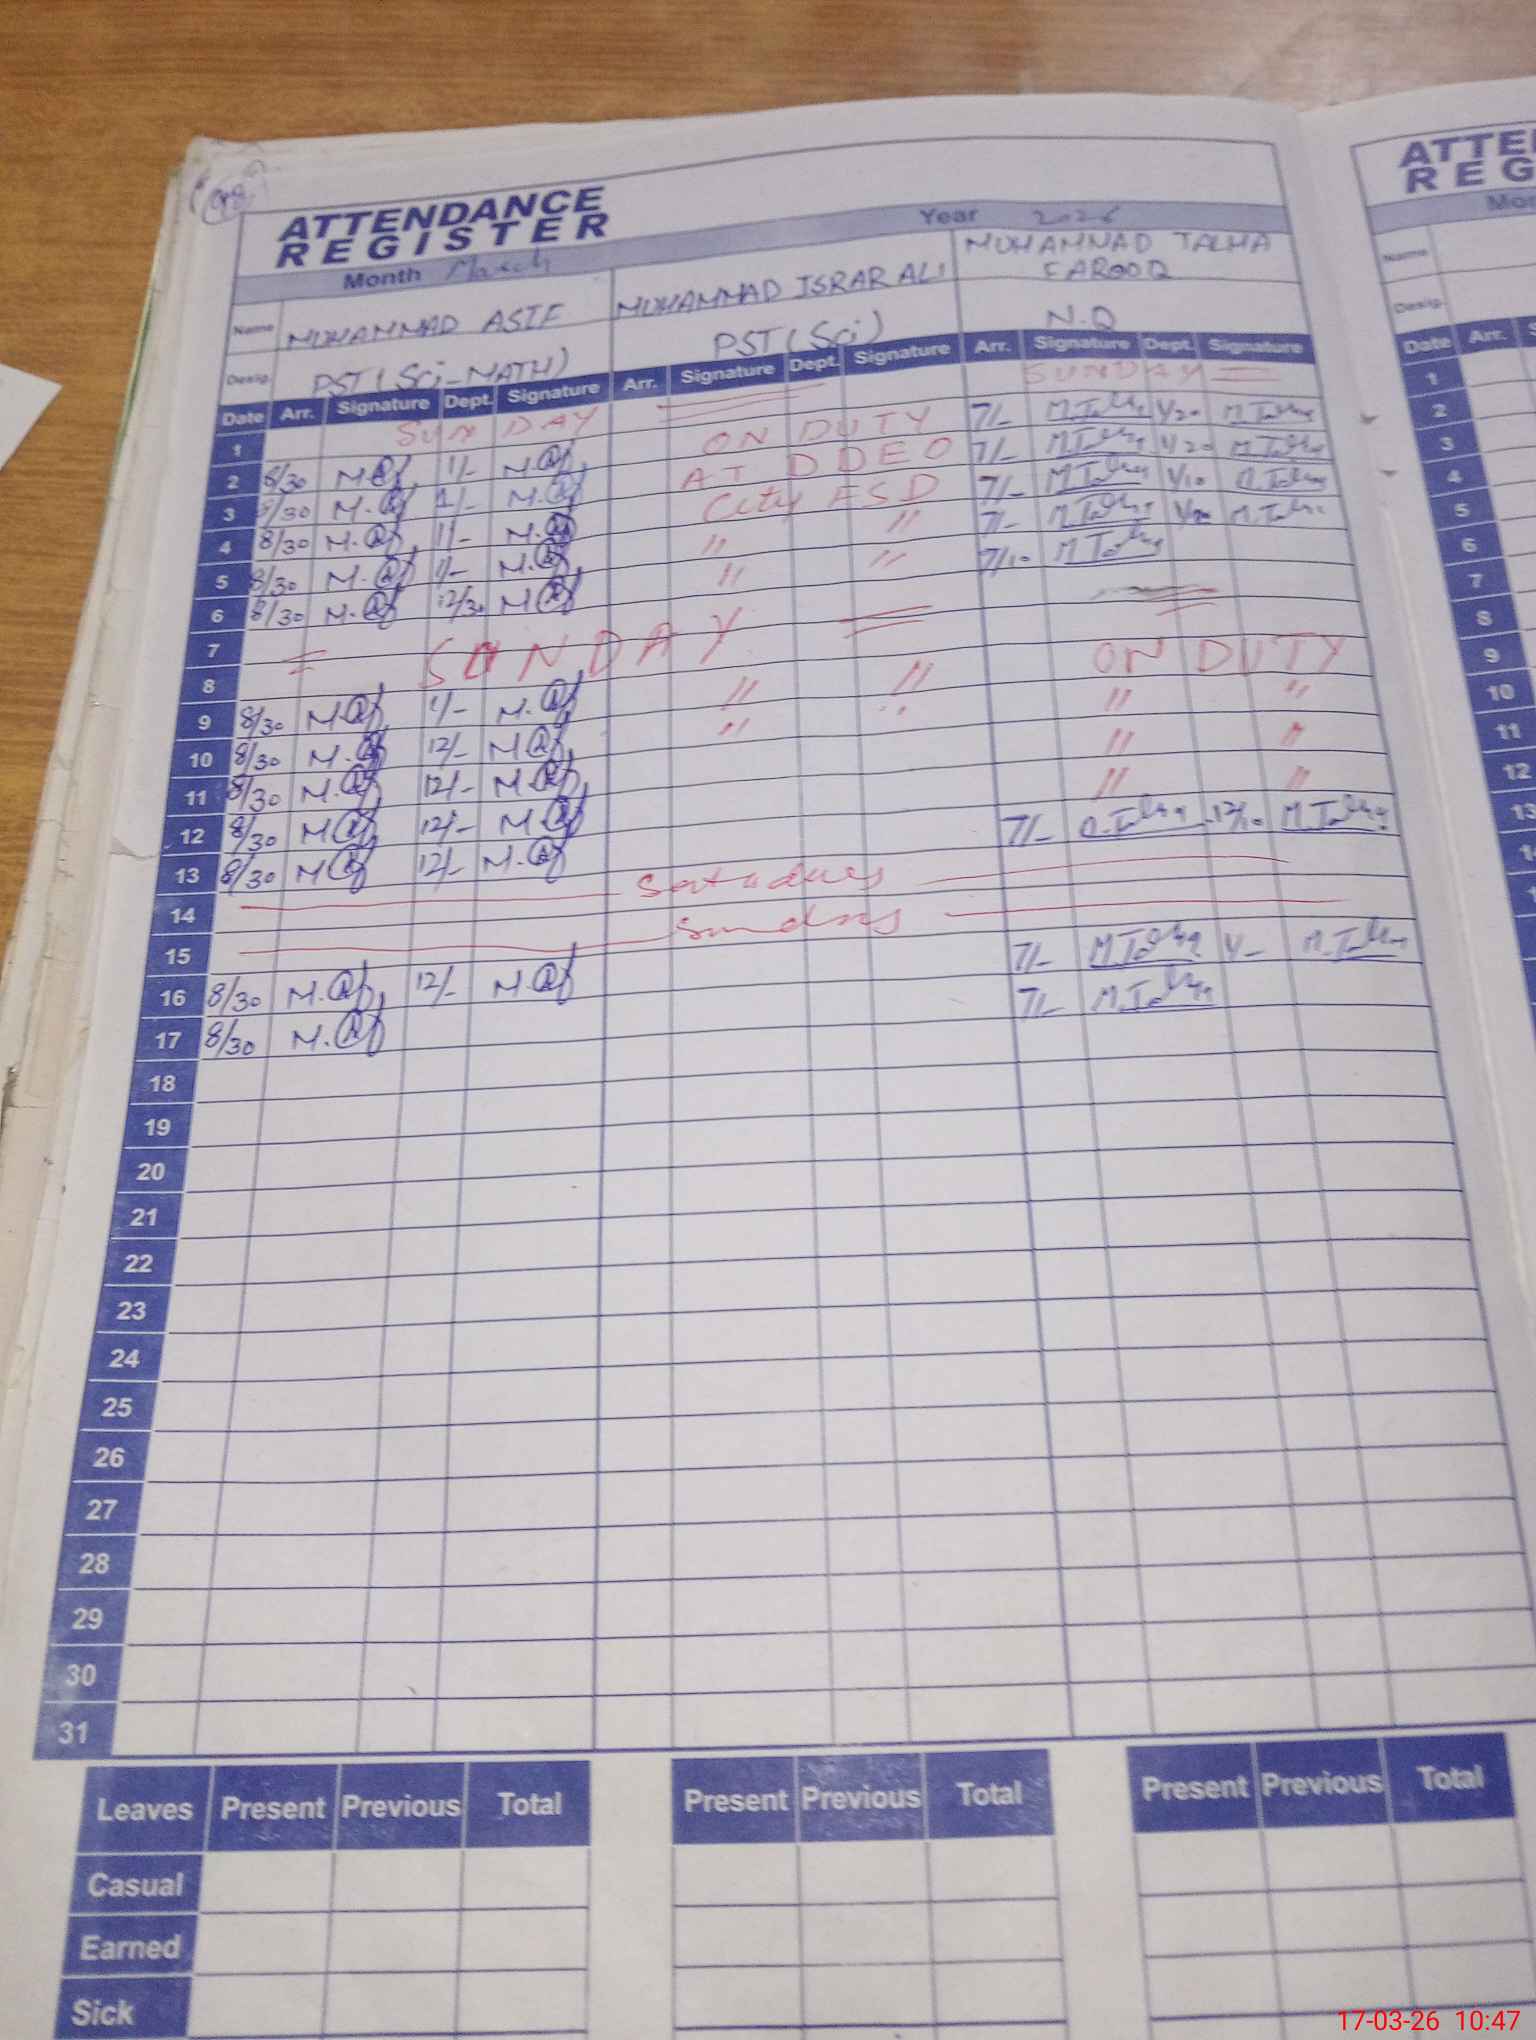 98
ATTENDANCE
REGISTER
Month March Year 2026
Name MUHAMMAD ASIF MUHAMMAD ISRAR ALI MUHAMMAD TALHA FAROOQ
Desig. PST (Sci-MATH) PST (Sci) N.Q
Date Arr. Signature Dept. Signature Arr. Signature Dept. Signature Arr. Signature Dept. Signature
1 SUNDAY SUNDAY
2 8/30 1/- ON DUTY 7/- M.Talha 1/20 M.Talha
3 8/30 1/- AT DDEO 7/- M.Talha 1/20 M.Talha
4 8/30 1/- City FSD 7/- M.Talha 1/10 M.Talha
5 8/30 1/- " " 7/- M.Talha 1/20 M.Talha
6 8/30 12/30 " " 7/10 M.Talha
7
8 = SUNDAY =
9 8/30 1/- " " ON DUTY
10 8/30 12/- " " " "
11 8/30 12/- " "
12 8/30 12/- " "
13 8/30 12/- 7/- M.Talha 12/10 M.Talha
14 Saturday
15 Sunday
16 8/30 12/- 7/- M.Talha 1/- M.Talha
17 8/30 7/- M.Talha
18
19
20
21
22
23
24
25
26
27
28
29
30
31
Leaves Present Previous Total Present Previous Total Present Previous Total
Casual
Earned
Sick
ATTE
REG
Mon
Name
Desig.
Date Arr. S
1
2
3
4
5
6
7
8
9
10
11
12
13
17-03-26 10:47